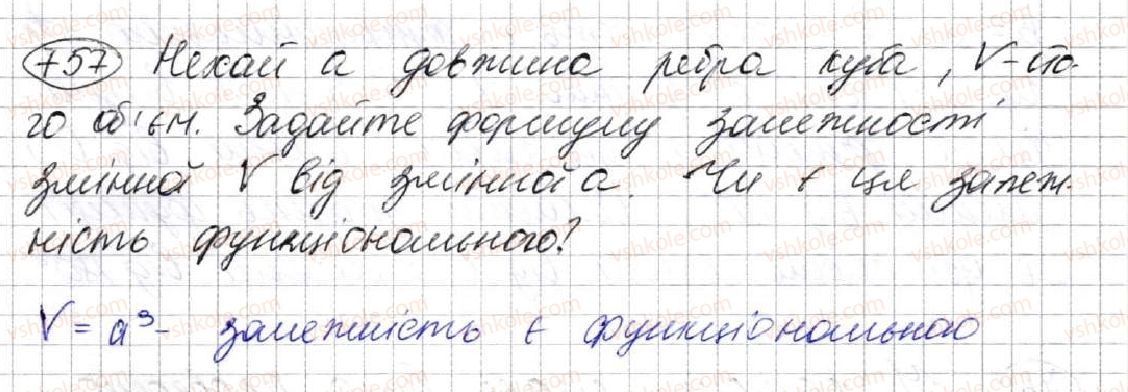 757 Нехай а довжина ребра куба, V - йо-
го об'єм. Задайте формулу залежності
змінної V від змінної а. Чи є ця залеж-
ність функціонального?
V = a³ - залежність є функціональною